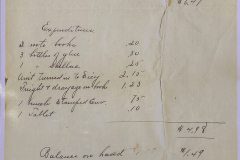 $6.47
Expenditures
2 note books .20
3 bottles of glue .30
1 " Shellac .25
Amt turned in to Secy 2.15
Freight & drayage on books 1.23
1 bunch stamped Env .75
1 tablet .10
$4.98
Balance on hand $1.49